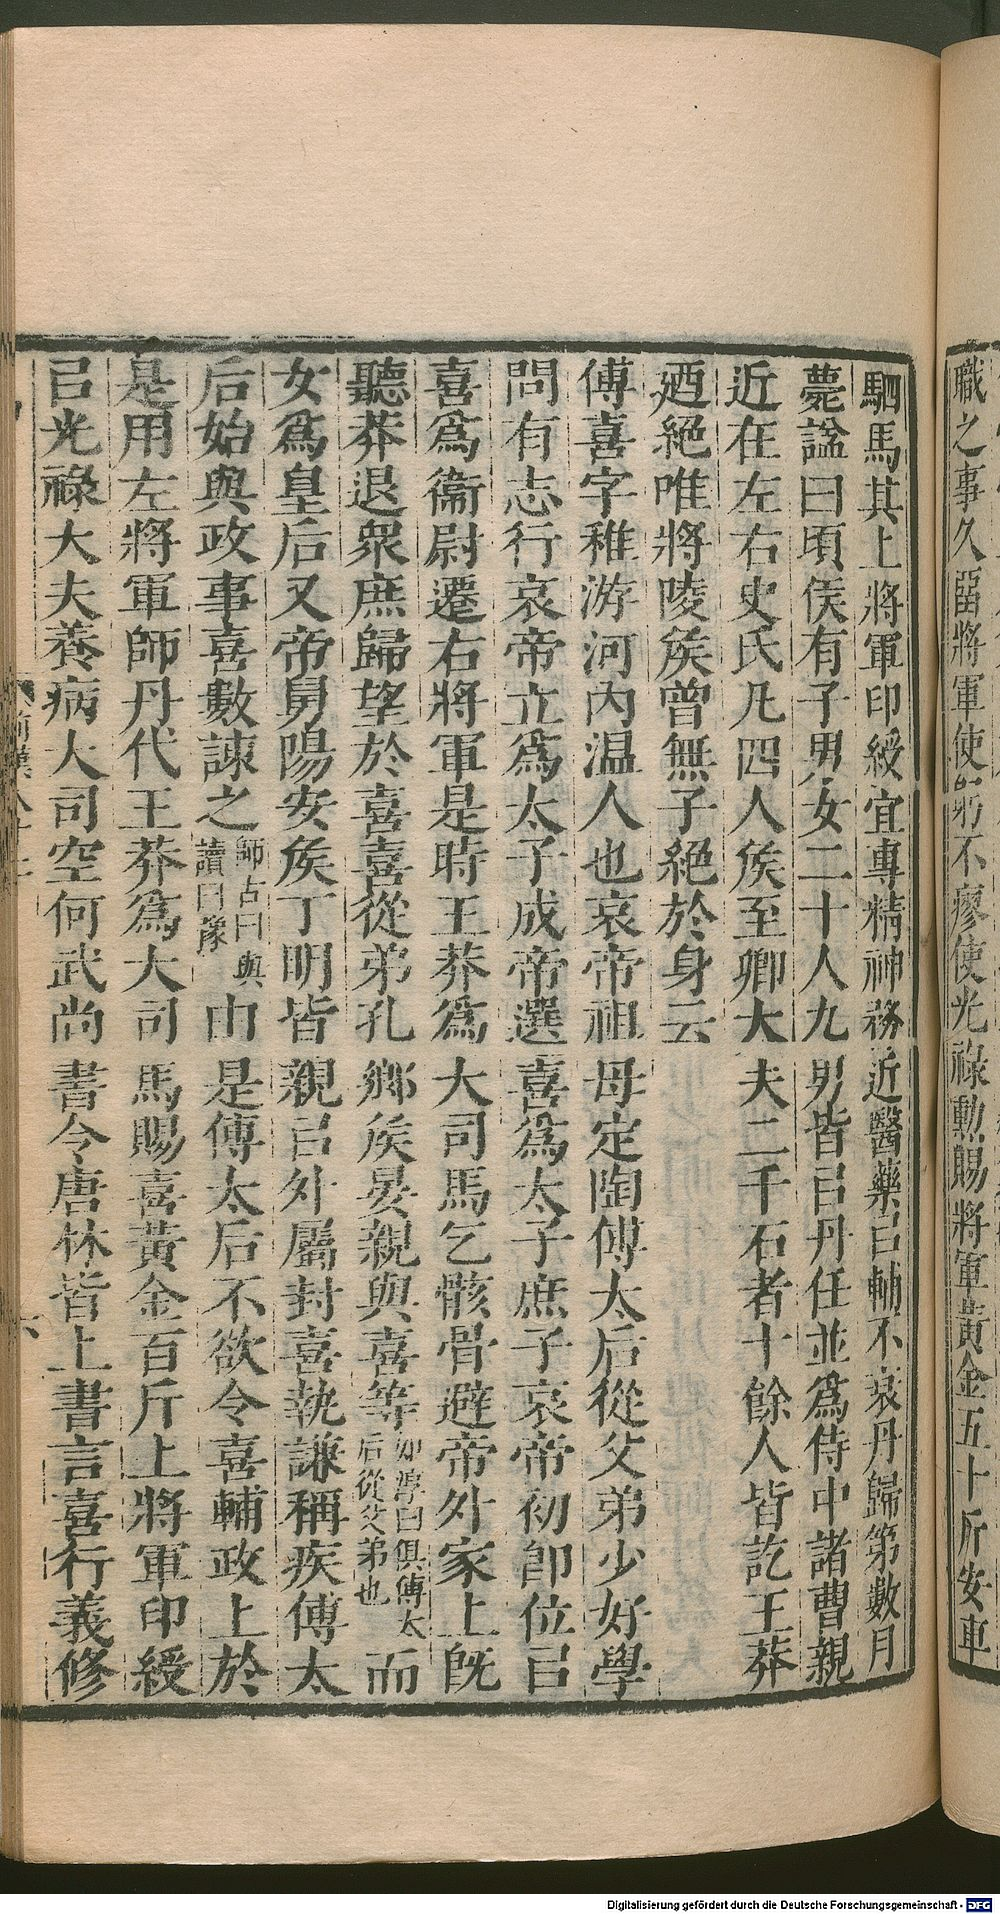 職之事久𤰞將軍使躬不瘳使光祿勳賜將軍黃金五十斤安車
駟馬其上將軍印綬宜專精神務近醫藥㠯輔不衰丹歸第數月
薨諡曰頃侯有子男女二十人九男皆㠯丹任並爲侍中諸曹親
近在左右史氏凡四人矦至卿大夫二千石者十餘人皆訖王莽
廼絕唯將陵矦曾無子絕於身云
傅喜字稚游河內温人也哀帝祖母定陶傅太后從父弟少好學
問有志行哀帝立爲太子成帝選喜爲太子庶子哀帝初卽位㠯
喜爲衞尉遷右將軍是時王莽爲大司馬乞骸骨避帝外家上旣
聽莽退衆庶歸望於喜喜從弟孔鄉矦晏親與喜等如淳曰俱傅太后從父弟也而
女爲皇后又帝舅陽安矦丁明皆親㠯外屬封喜執謙稱疾傅太
后始與政事喜數諫之師古曰與讀曰豫由是傅太后不欲令喜輔政上於
是用左將軍師丹代王莽爲大司馬賜喜黃金百斤上將軍印綬
㠯光祿大夫養病大司空何武尚書令唐林皆上書言喜行義修
前漢八十二
六
Digitalisierung gefördert durch die Deutsche Forschungsgemeinschaft - DFG